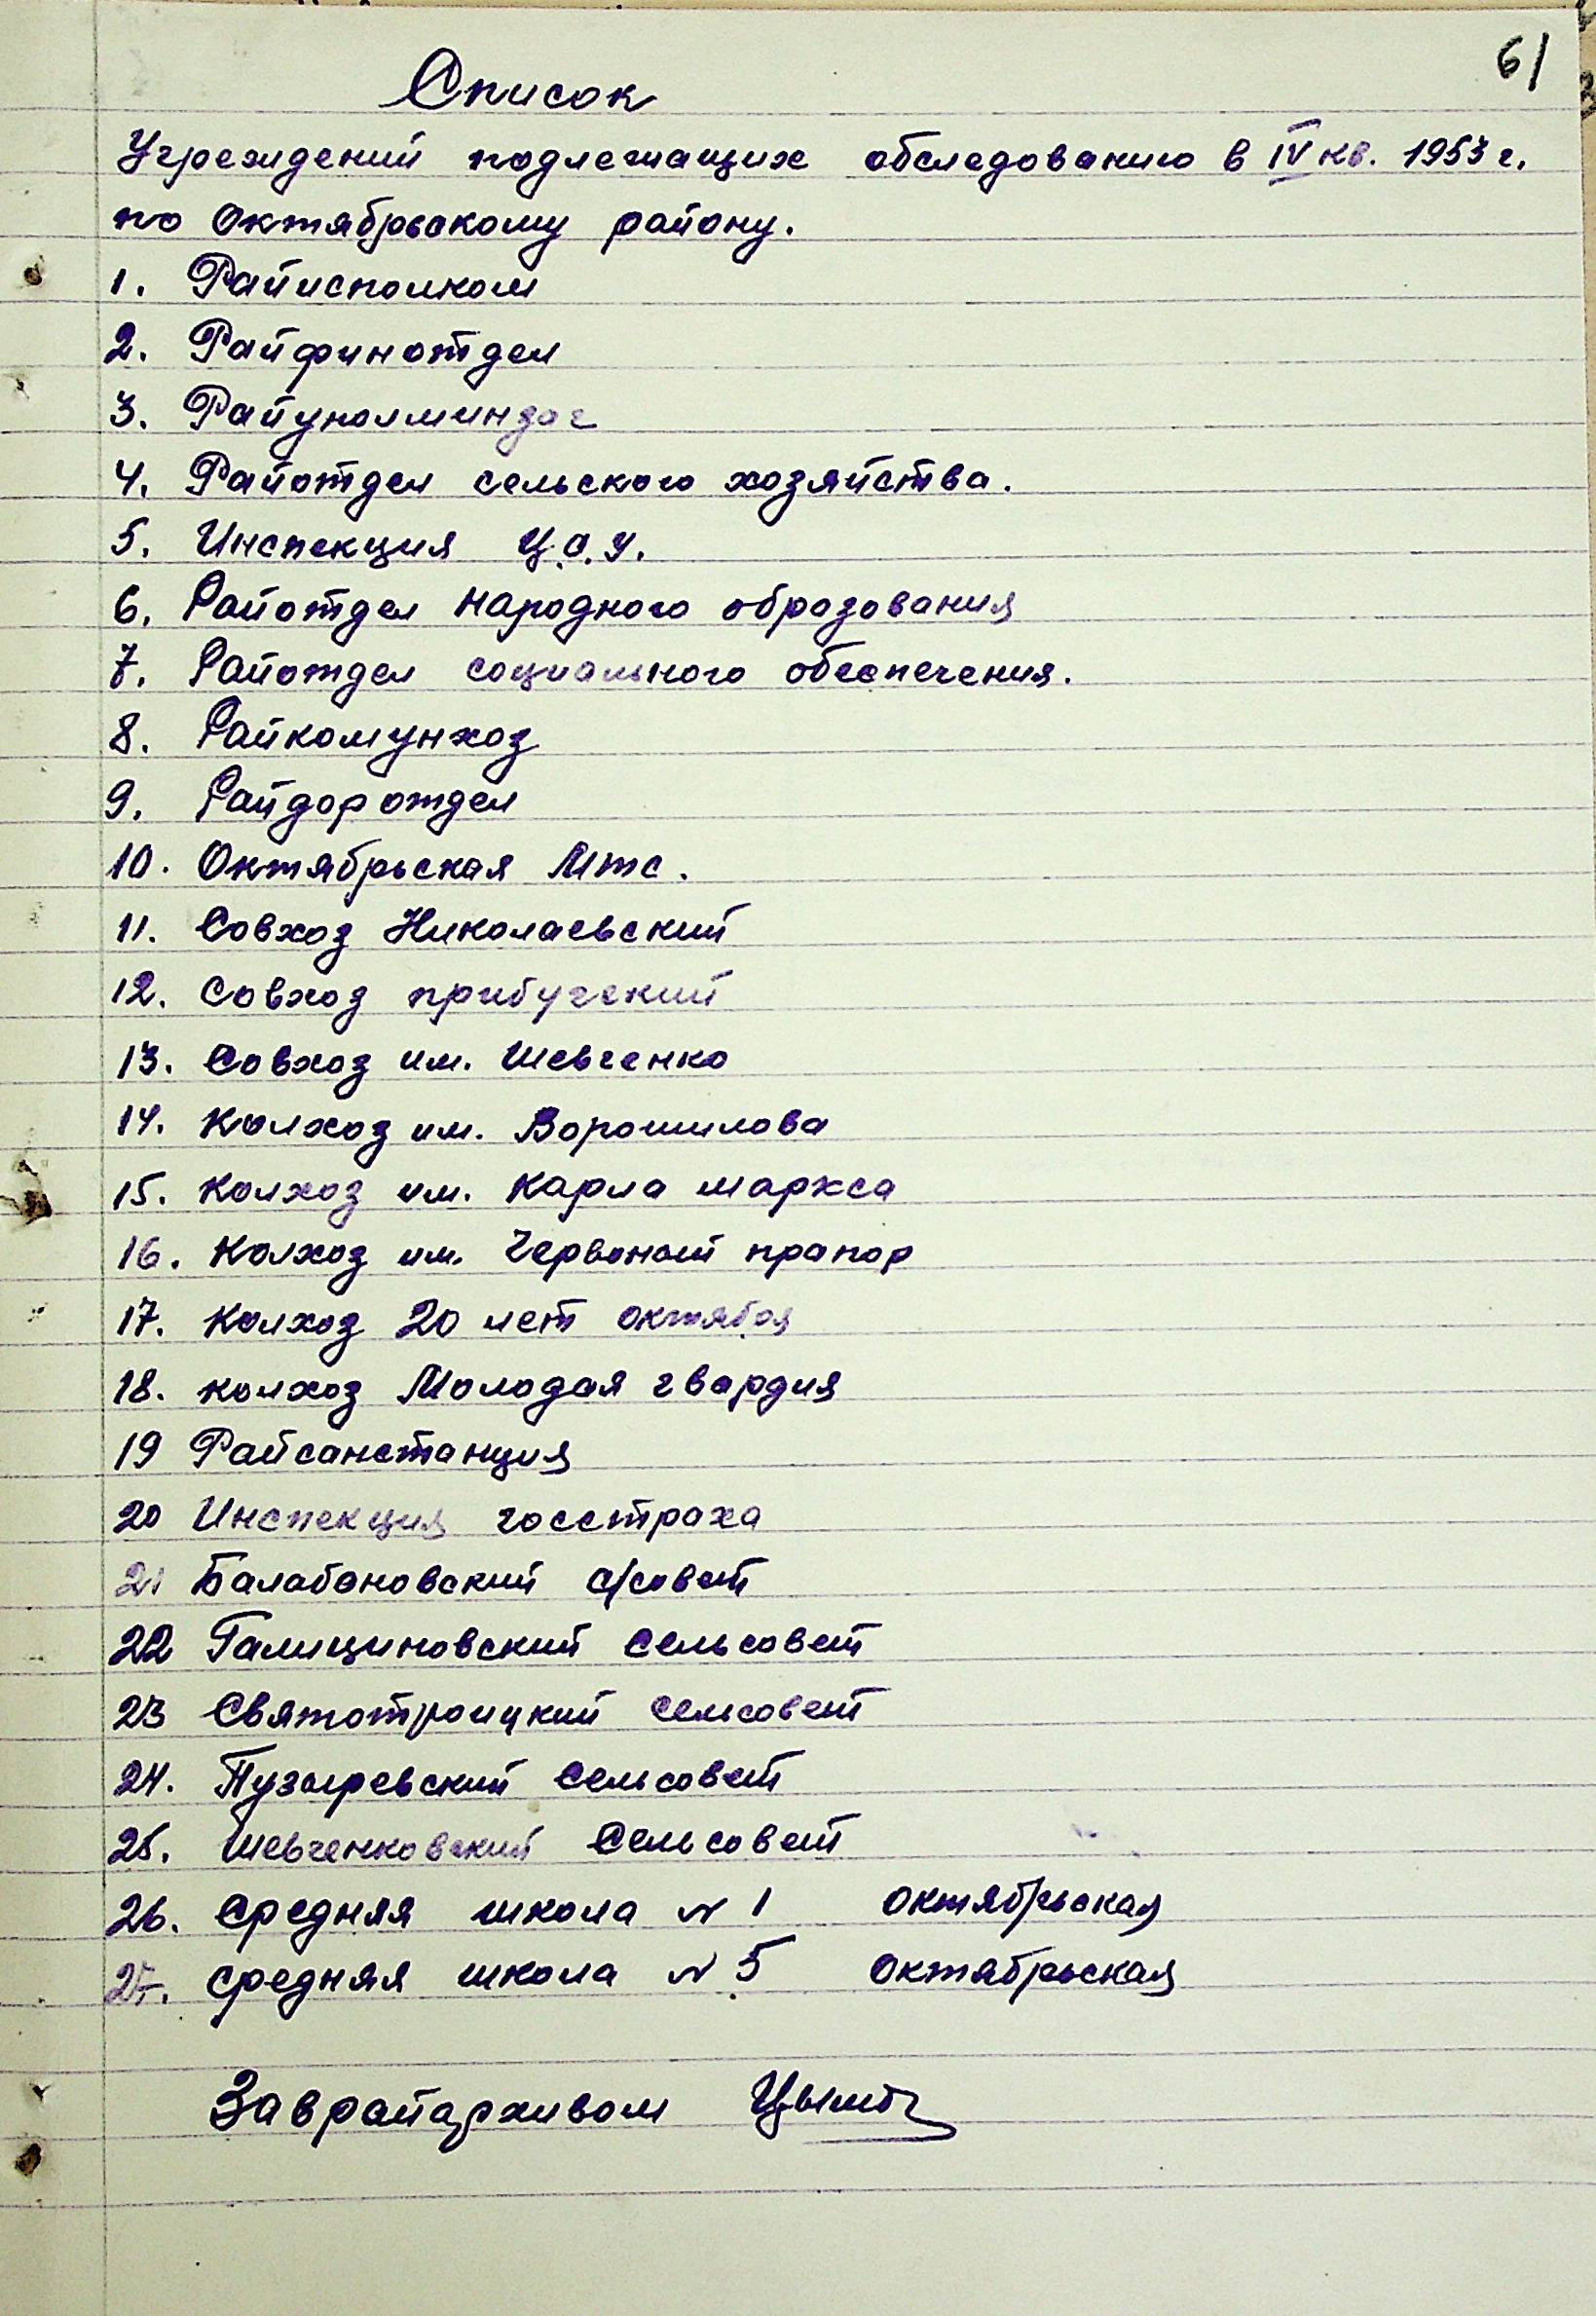 61
Список
Учреждений подлежащих обследованию в IV кв. 1953 г.
по Октябрьскому району.
1. Райисполком
2. Райфинотдел
3. Райуполминзаг
4. Райотдел сельского хозяйства.
5. Инспекция Ц.С.У.
6. Райотдел народного образования
7. Райотдел социального обеспечения.
8. Райкомунхоз
9. Райдоротдел
10. Октябрьская Мтс.
11. Совхоз Николаевский
12. Совхоз прибугский
13. Совхоз им. Шевченко
14. Колхоз им. Ворошилова
15. Колхоз им. Карла маркса
16. Колхоз им. Червоный прапор
17. Колхоз 20 лет октября
18. колхоз Молодая гвардия
19 Райсанстанция
20 Инспекция госстраха
21 Балабановский с/совет
22 Галициновский Сельсовет
23 Святотроицкий сельсовет
24. Пузыревский Сельсовет
25. Шевченковский Сельсовет
26. Средняя школа N 1 октябрьская
27. Средняя школа N 5 октябрьская
Заврайархивом